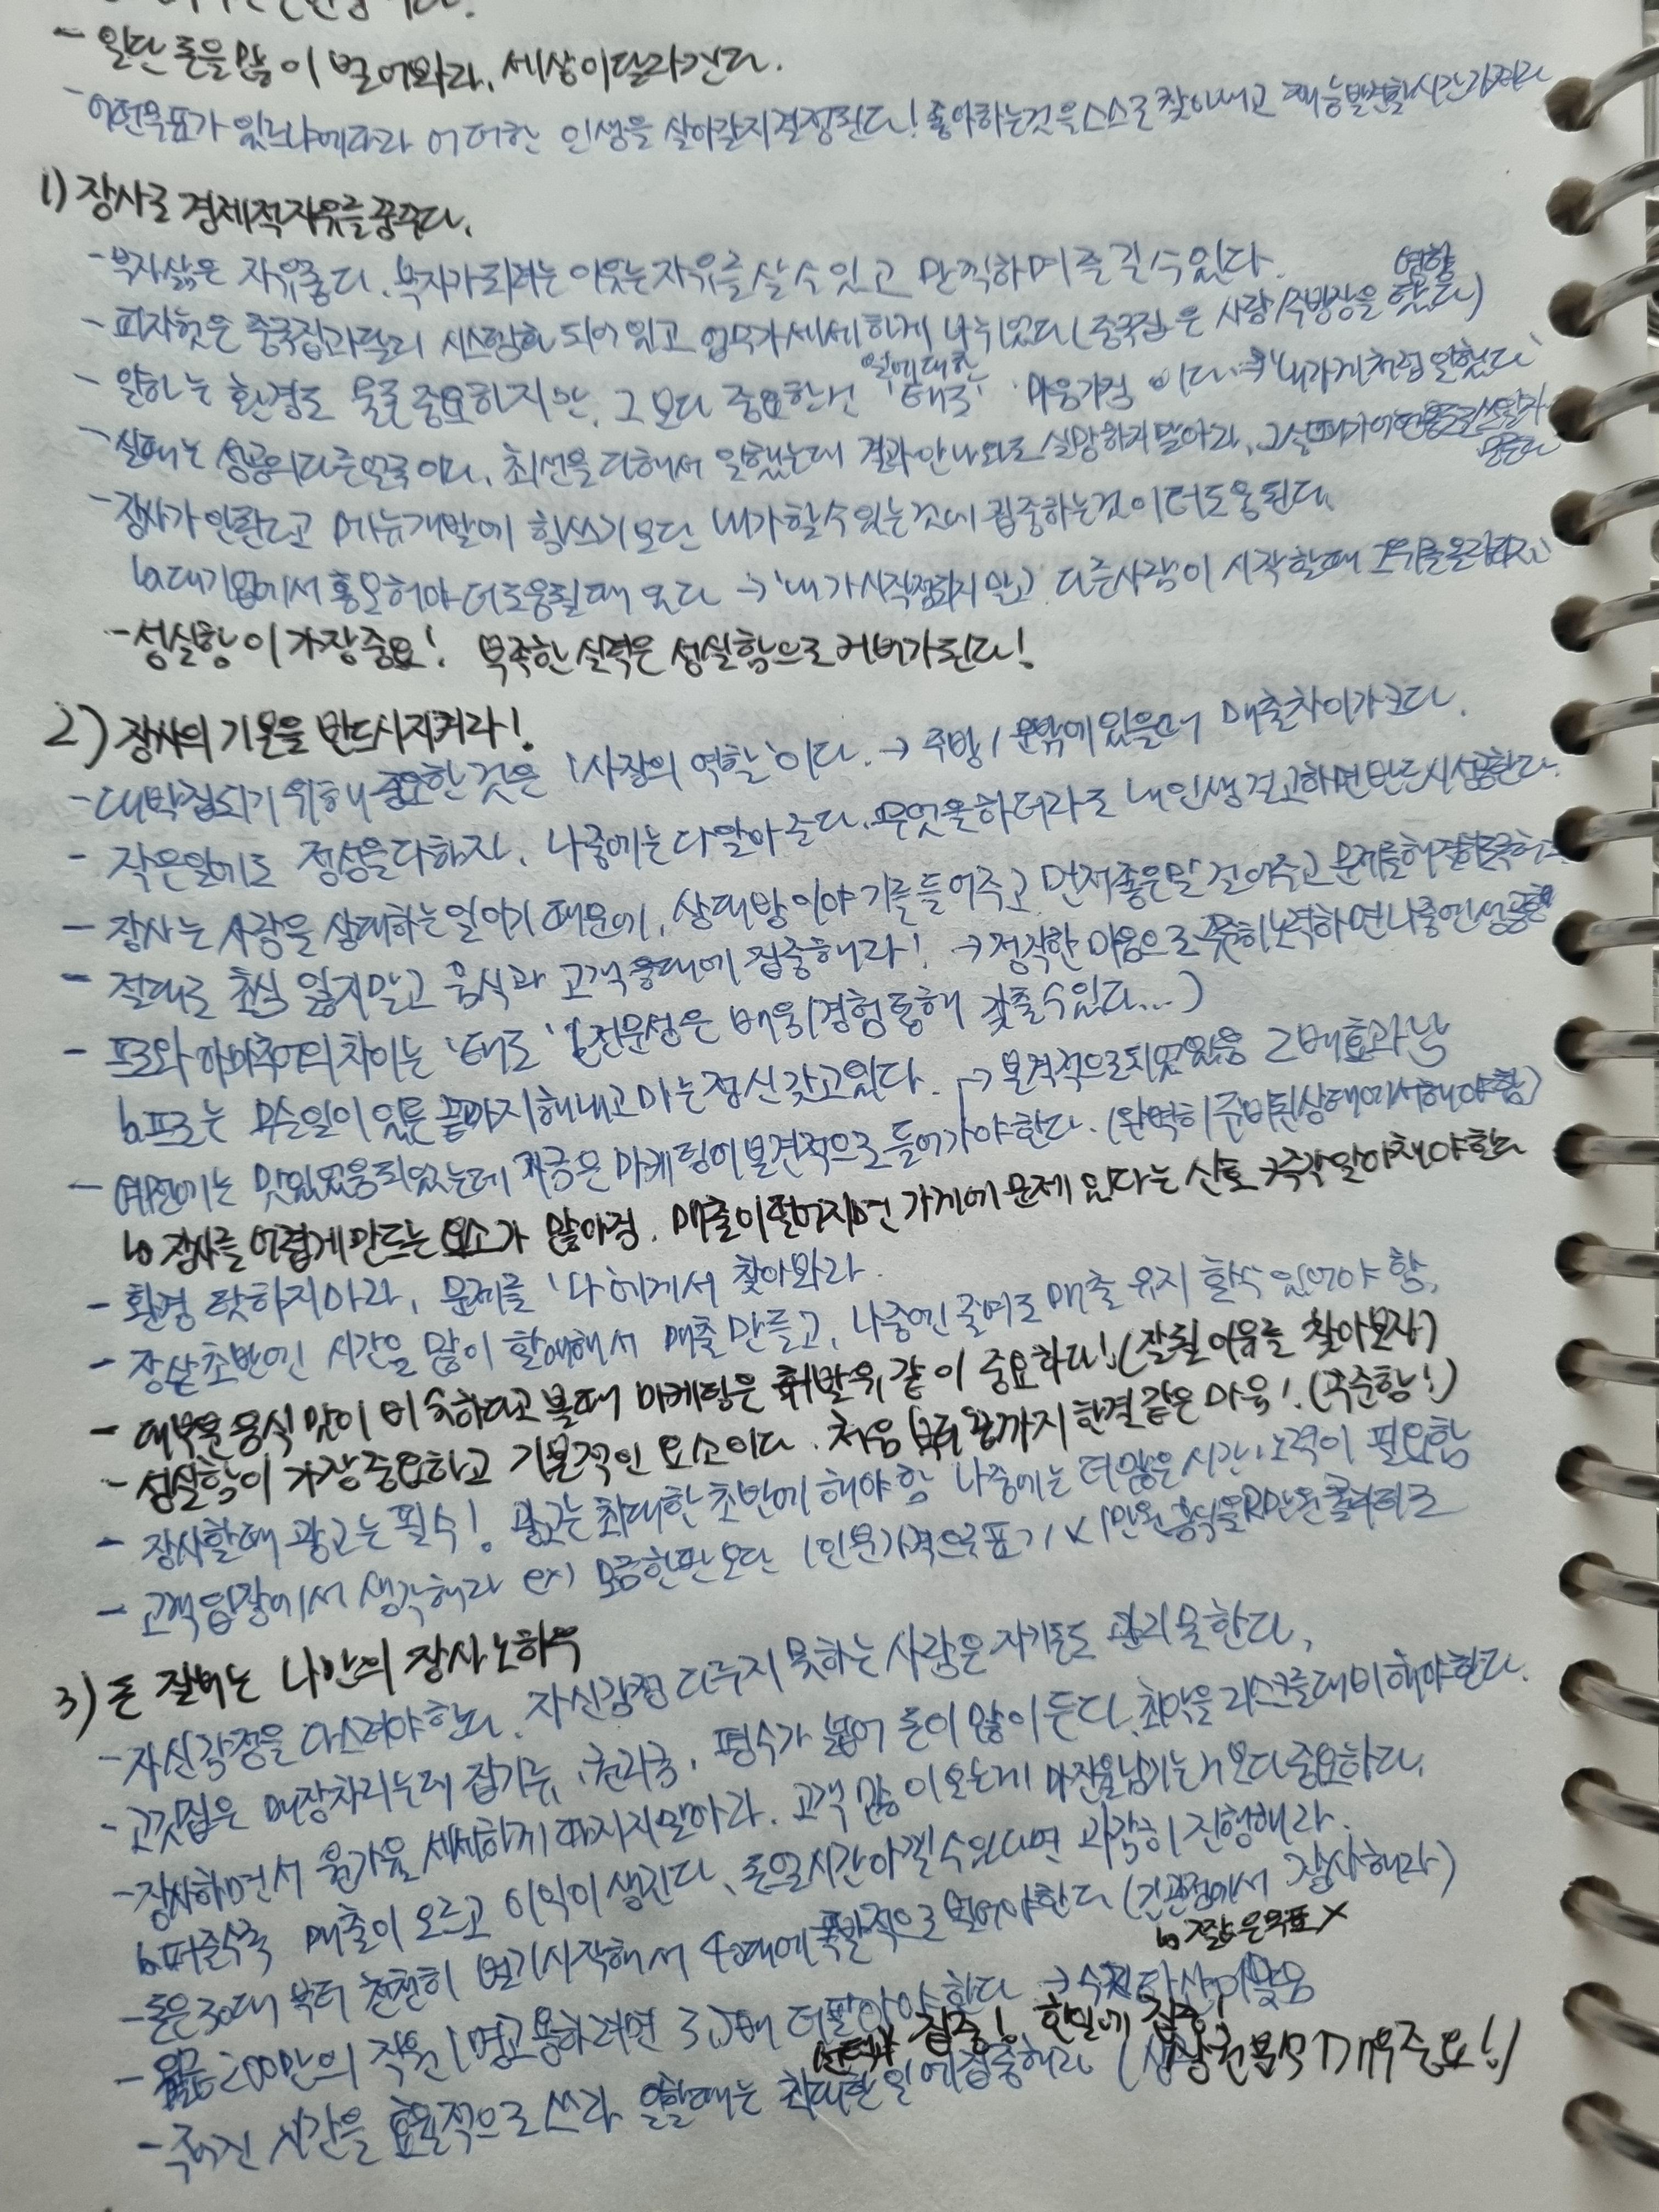 - 일단 돈을 많이 벌어와라, 세상이 달라진다.
- 어떤목표가 있느냐에따라 어떠한 인생을 살아갈지 결정된다! 좋아하는것을 스스로 찾아내고 재능발견할시간가져라
1) 장사로 경제적자유를 꿈꾸다.
- 부자삶은 자유롭다. 부자가되려는 이유는 자유를 살 수 있고 만끽하며 즐길 수 있다.
- 피자헛은 중국집과달리 시스템화 되어 있고 업무가 세세하게 나뉘었다 (중국집은 사람/주방장을 영향
- 일하는 환경도 물론 중요하지만, 그보다 중요한건 일에대한 '태도' 마음가짐 이다 → '내가게처럼 일했다'
- 실패는 성공의 다른얼굴이다. 최선을 다해서 일했는데 결과안나와도 실망하지말아라,
- 장사가 안된다고 메뉴개발에 힘쓰기보단 내가할수있는것에 집중하는것이 더도움된다.
↳대기업에서 홍보해야 더도움될때 있다 → '내가시작하지말고 다른사람이 시작할때
- 성실함이 가장중요! 부족한실력은 성실함으로 커버가된다!
2) 장사의 기본을 반드시지켜라!
- 대박집되기 위해 중요한 것은 '사장의 역할'이다. → 주방/문밖에있을때 매출차이가크다.
- 작은일에도 정성을다하자. 나중에는 다알아준다. 무엇을하더라도 내인생 걸고하면반드시성공한다.
- 장사는 사람을 상대하는일이기 때문에, 상대방이야기를 들어주고 먼저좋은말 걸어주고 문제를해결하도록하
- 절대로 초심 잃지말고 음식과 고객응대에 집중해라! → 정직한 마음으로 꾸준히노력하면나중엔성공함
- 프로와 아마추어의 차이는 '태도' (전문성은 배움/경험통해 갖출수있다...)
↳프로는 무슨일이 있든 끝까지해내고마는정신갖고있다. → 본격적으로되었있음 2배효과남
- 예전에는 맛있었음되었는데 지금은 마케팅이 본격적으로 들어가야한다. (완벽히준비된상태에서해야함)
↳ 장사를 어렵게만드는 요소가 많아짐. 매출이떨어지면 가게에문제 있다는 신호 →즉각알아채야한다
- 환경 탓하지마라, 문제를 '나'에게서 찾아와라.
- 장사초반엔 시간을 많이 할애해서 매출만들고, 나중엔 줄여도 매출 유지 할수 있어야 함.
- 대부분음식 맛이 비슷하다고 볼때 마케팅은 휘발유같이 중요하다! (잘될 이유를 찾아보자)
- 성실함이 가장중요하고 기본적인 요소이다. 처음부터 끝까지한결같은 마음! (꾸준함!)
- 장사할때 광고는 필수! 광고는 최대한 초반에 해야함 나중에는 더많은시간/노력이 필요함
- 고객입장에서 생각해라 ex) 모듬한판보단 1인분가격으로표기 / 1만원음식을 2만원퀄리티로
3) 돈 잘버는 나만의 장사노하우
- 자신감정을 다스려야한다. 자신감정 다루지 못하는 사람은 자기돈도 관리 못한다.
- 고깃집은 매장차리는데 집기류, 평수가 넓어 돈이 많이 든다. 최악을 리스크를대비해야한다.
- 장사하면서 원가율 세세하게 따지지말아라. 고객 많이오는게 마진율남기는거보다 중요하다.
↳퍼줄수록 매출이 오르고 이익이 생긴다. 돈으로 시간아낄수있다면 과감히 진행해라.
- 돈은 30대 부터 천천히 벌기시작해서 40대에 폭발적으로 벌어야한다 (긴관점에서 장사해라)
↳짧은목표 X
- 월급 200만의 직원 1명고용하려면 3.3배 더팔아야 한다
선택과 집중! 한일에 집중!
- 주어진 시간을 효율적으로 쓰라 일할때는 최대한 일에집중해라 (상권분석 매우중요!!)